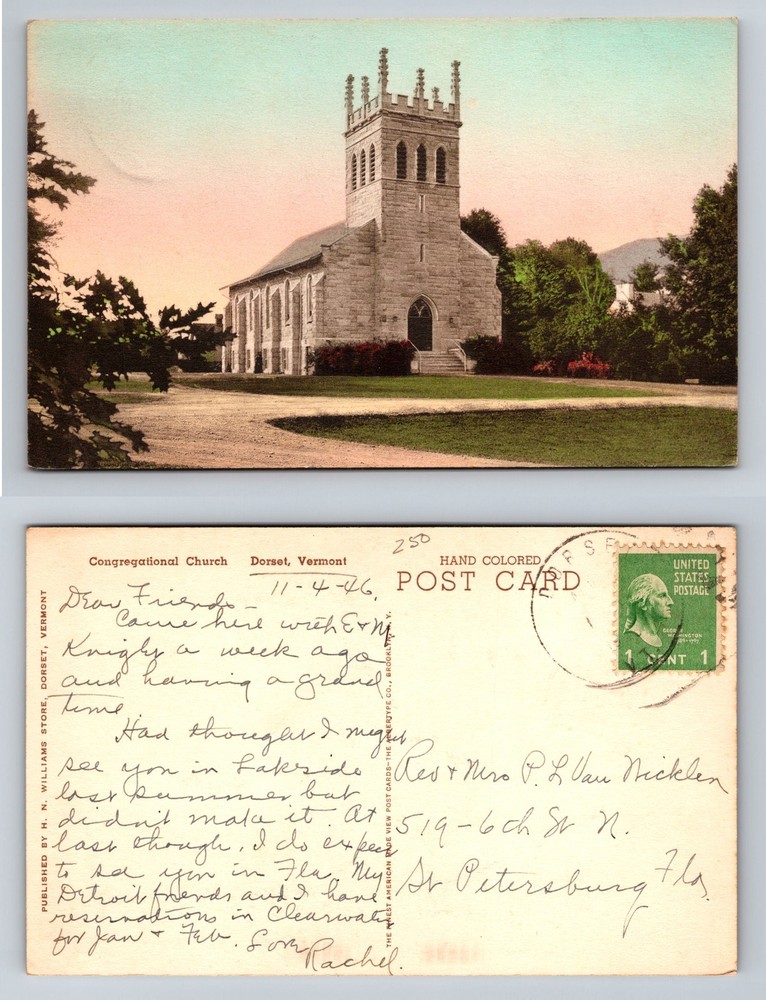 250
Congregational Church Dorset, Vermont
HAND COLORED
POST CARD
UNITED
STATES
POSTAGE
GEORGE
WASHINGTON
1 CENT 1
DORSE
11-4-46.
Dear Friends -
Came here with E & M
Knight a week ago
and having a grand
time
Had thought I might
see you in Lakeside
last summer but
didn't make it. At
last though, I do expect
to see you in Fla. My
Detroit friends and I have
reservations in Clearwater
for Jan + Feb. Love
Rachel.
Rev + Mrs P. L. Van Nicklen
519-6th St N.
St Petersburg Fla.
PUBLISHED BY H. N. WILLIAMS STORE, DORSET, VERMONT
THE FINEST AMERICAN MADE VIEW POST CARDS—THE ALBERTYPE CO., BROOKLYN, N.Y.